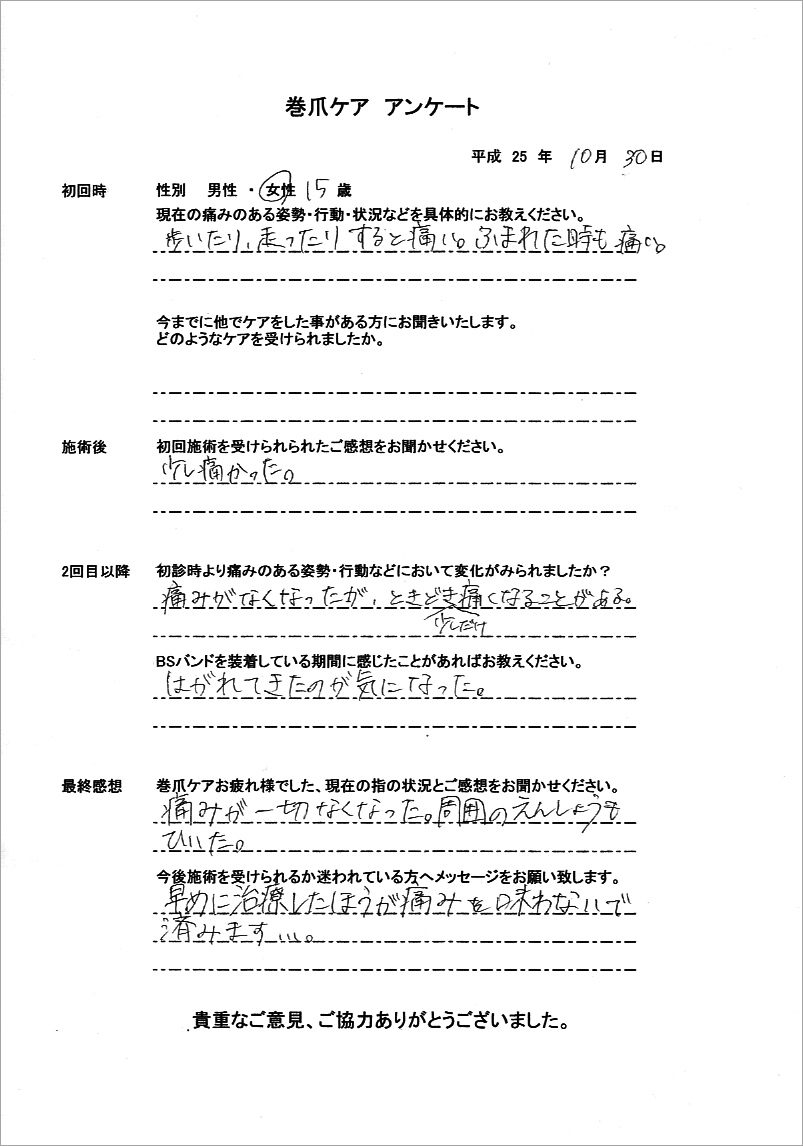 巻爪ケア　アンケート
平成 25 年 10月 30日
初回時　性別　男性 ・ 女性 15歳
現在の痛みのある姿勢・行動・状況などを具体的にお教えください。
歩いたり、走ったりすると痛い。ふまれた時も痛い。
今までに他でケアをした事がある方にお聞きいたします。
どのようなケアを受けられましたか。
施術後　初回施術を受けられられたご感想をお聞かせください。
少し痛かった。
2回目以降　初診時より痛みのある姿勢・行動などにおいて変化がみられましたか？
痛みがなくなったが、ときどき痛くなることがある。
少しだけ
BSバンドを装着している期間に感じたことがあればお教えください。
はがれてきたのが気になった。
最終感想　巻爪ケアお疲れ様でした、現在の指の状況とご感想をお聞かせください。
痛みが一切なくなった。周囲のえんしょうも
ひいた。
今後施術を受けられるか迷われている方へメッセージをお願い致します。
早めに治療したほうが痛みを味わないで
済みます…。
貴重なご意見、ご協力ありがとうございました。